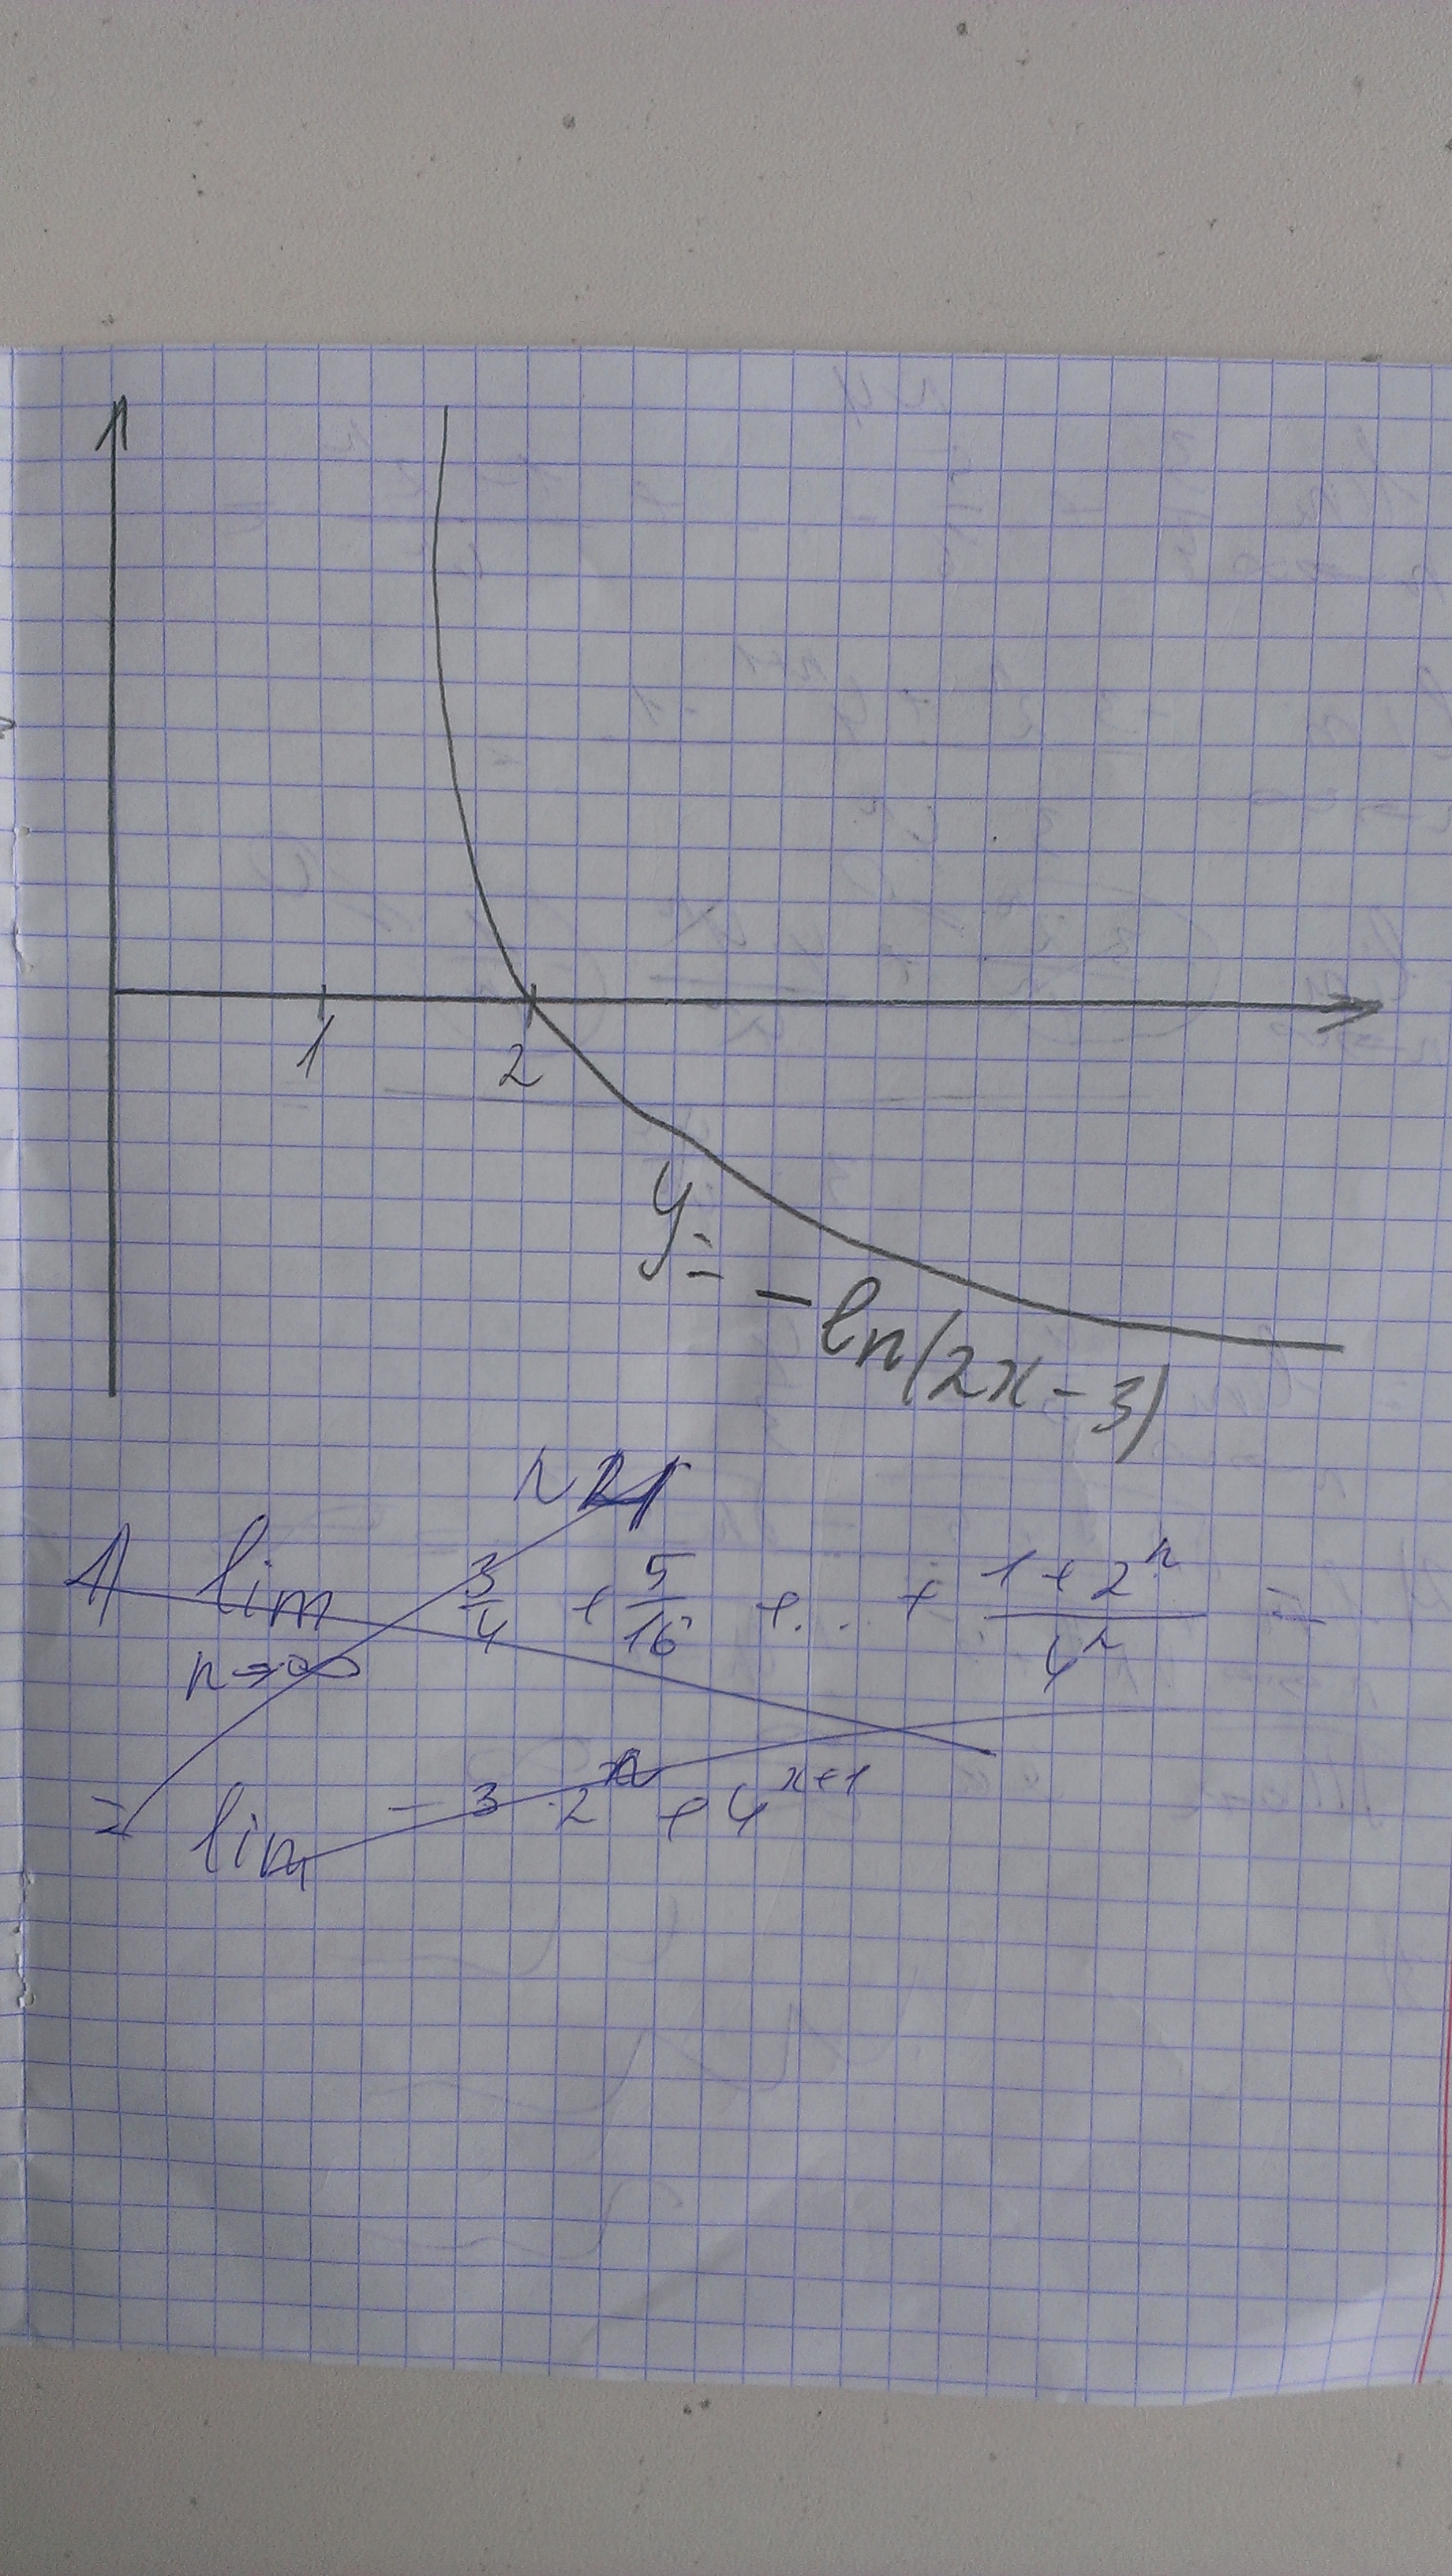 1 2
y = -ln(2x-3)
1) lim 3/4 + 5/16 + ... + (1+2^n)/4^n =
n→∞
= lim -3·2^n + 4^{x+1}